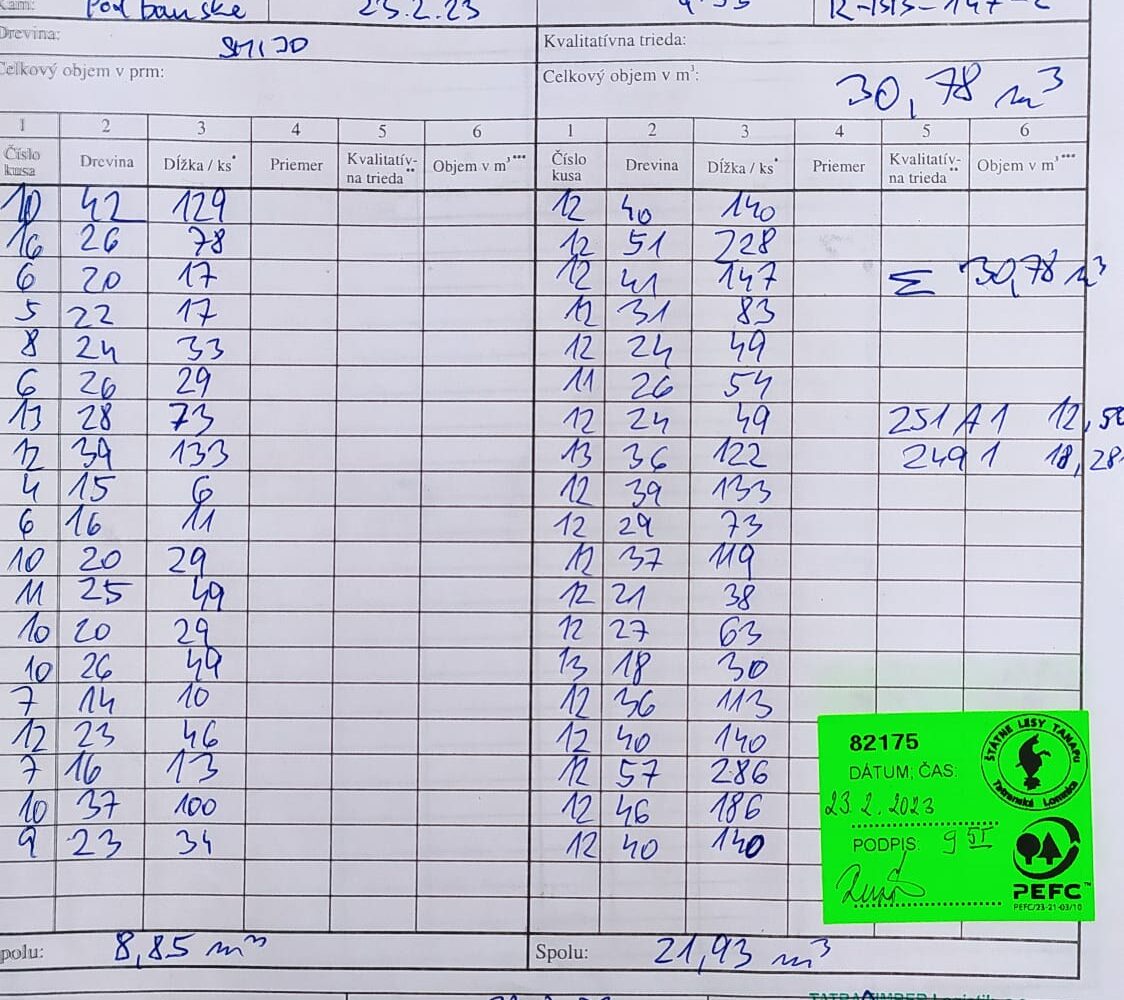 Kam: Podbanske 23.2.23 R-BIS-147-2
Drevina: SM1JD Kvalitatívna trieda:
Celkový objem v prm: Celkový objem v m³: 30,78 m³
1 2 3 4 5 6 1 2 3 4 5 6
Číslo kusa Drevina Dĺžka / ks* Priemer Kvalitatív-na trieda** Objem v m³*** Číslo kusa Drevina Dĺžka / ks* Priemer Kvalitatív-na trieda** Objem v m³***
10 42 129 12 40 140
16 26 78 12 51 228
6 20 17 12 41 147 Σ 30,78 m³
5 22 17 12 31 83
8 24 33 12 24 49
6 26 29 11 26 54
13 28 73 12 24 49 251 A1 12,50
12 39 133 13 36 122 249 1 18,28
4 15 6 12 39 133
6 16 11 12 29 73
10 20 29 12 37 119
11 25 49 12 21 38
10 20 29 12 27 63
10 26 49 13 18 30
7 14 10 12 36 113
12 23 46 12 40 140
7 16 13 12 57 286
10 37 100 12 46 186
9 23 34 12 40 140
Spolu: 8,85 m³ Spolu: 21,93 m³
82175
DÁTUM, ČAS:
23.2.2023
PODPIS: 9 55
ŠTÁTNE LESY TANAPU
Tatranská Lomnica
PEFC™
PEFC/23-21-03/10